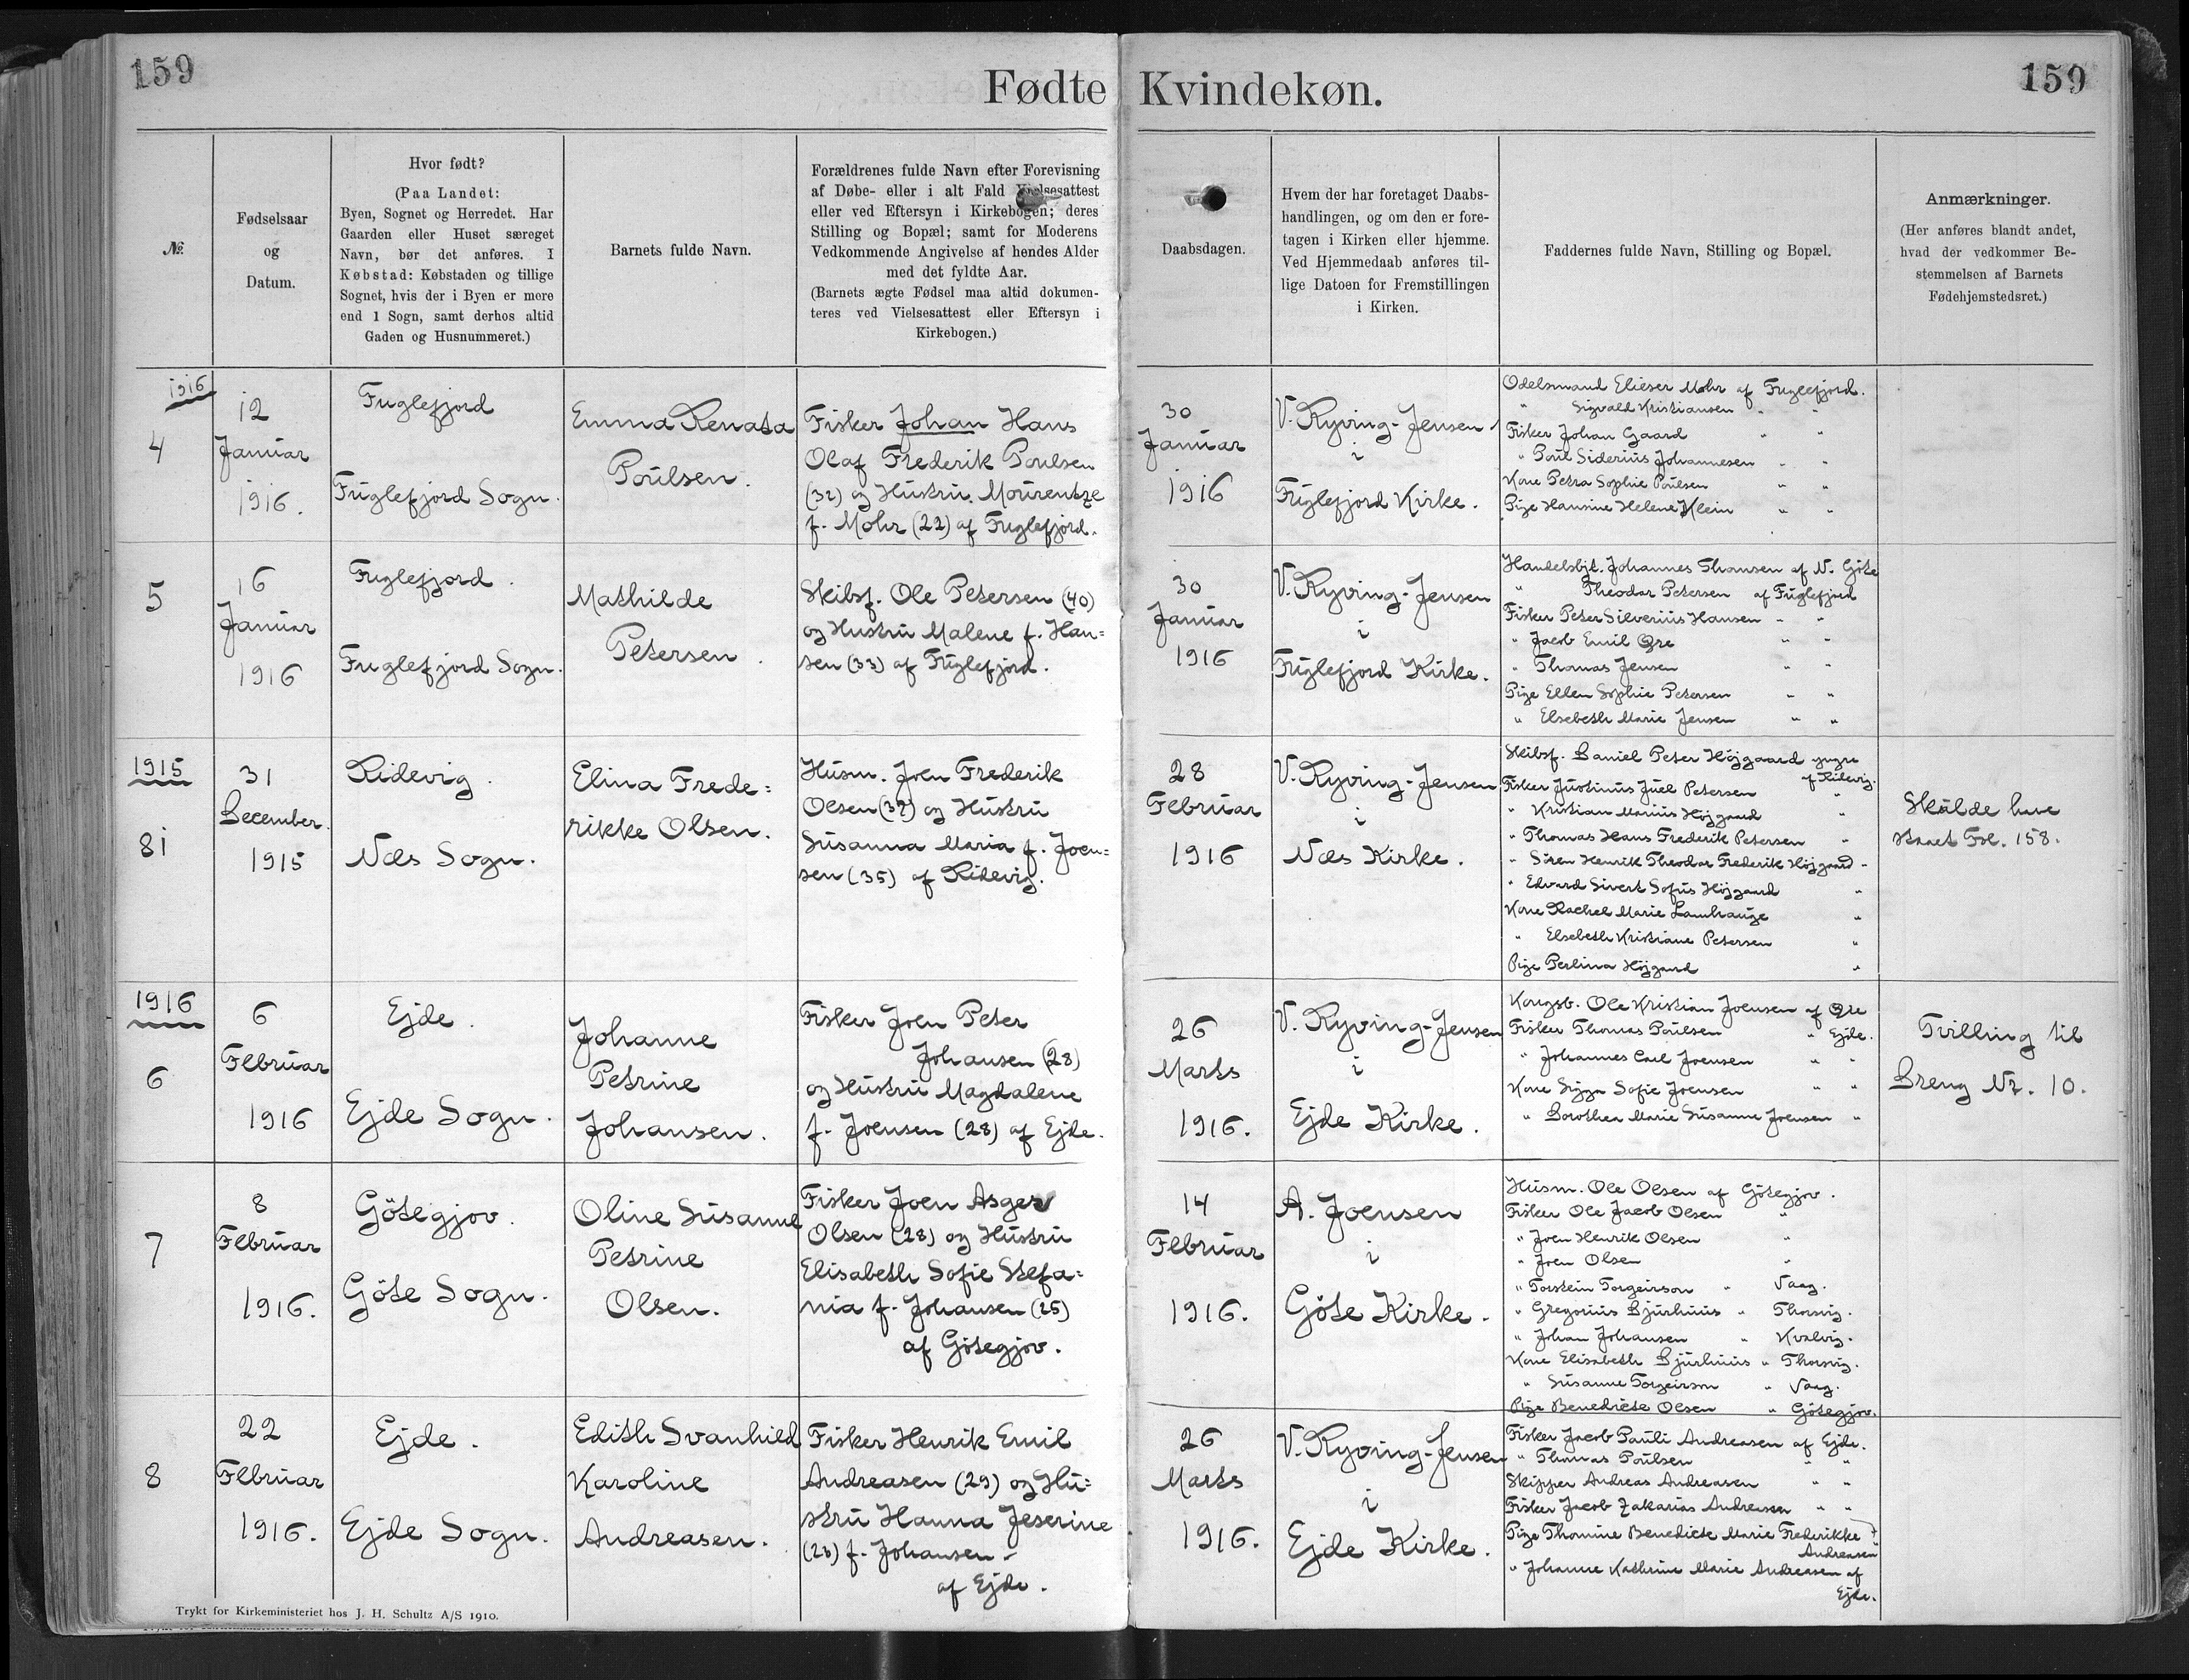 159
Fødte Kvindekøn.
159
№
Fødselsaar
og
Datum.
Hvor født?
(Paa Landet:
Byen, Sognet og Herredet. Har
Gaarden eller Huset særeget
Navn, bør det anføres. I
Købstad: Købstaden og tillige
Sognet, hvis der i Byen er mere
end 1 Sogn, samt derhos altid
Gaden og Husnummeret.)
Barnets fulde Navn.
Forældrenes fulde Navn efter Forevisning
af Døbe- eller i alt Fald Vielsesattest
eller ved Eftersyn i Kirkebogen; deres
Stilling og Bopæl; samt for Moderens
Vedkommende Angivelse af hendes Alder
med det fyldte Aar.
(Barnets ægte Fødsel maa altid dokumen-
teres ved Vielsesattest eller Eftersyn i
Kirkebogen.)
Daabsdagen.
Hvem der har foretaget Daabs-
handlingen, og om den er fore-
tagen i Kirken eller hjemme.
Ved Hjemmedaab anføres til-
lige Datoen for Fremstillingen
i Kirken.
Faddernes fulde Navn, Stilling og Bopæl.
Anmærkninger.
(Her anføres blandt andet,
hvad der vedkommer Be-
stemmelsen af Barnets
Fødehjemstedsret.)
1916
4
12
Januar
1916.
Fuglefjord
Fuglefjord Sogn.
Emma Renata
Poulsen.
Fisker Johan Hans
Olaf Frederik Poulsen
(32) og Hustru Mourentze
f. Mohr (22) af Fuglefjord.
30
Januar
1916
V. Ryving-Jensen
i
Fuglefjord Kirke.
Odelsmand Elieser Mohr af Fuglefjord.
" Sigvald Kristiansen " "
Fisker Johan Gaard " "
" Poul Siderius Johannesen " "
Kone Petra Sophie Poulsen " "
Pige Hansine Helene Klein " "
5
16
Januar
1916
Fuglefjord.
Fuglefjord Sogn.
Mathilde
Petersen.
Skibsf. Ole Petersen (40)
og Hustru Malene f. Han=
sen (33) af Fuglefjord.
30
Januar
1916
V. Ryving-Jensen
i
Fuglefjord Kirke.
Handelsbjt. Johannes Thomsen af N. Göte
" Theodor Petersen af Fuglefjord
Fisker Peter Silverius Hansen " "
" Jacob Emil Øre " "
" Thomas Jensen " "
Pige Ellen Sophie Petersen " "
" Elsebeth Marie Jensen " "
1915
81
31
December.
1915
Ridevig.
Næs Sogn.
Elina Frede=
rikke Olsen.
Husm. Joen Frederik
Olsen (32) og Hustru
Susanna Maria f. Joen=
sen (35) af Ridevig.
28
Februar
1916
V. Ryving-Jensen
i
Næs Kirke.
Skibsf. Daniel Peter Højgaard yngre
af Ridevig.
Fisker Justinus Juel Petersen "
" Kristian Marius Højgaard "
" Thomas Hans Frederik Petersen "
" Sören Henrik Theodor Frederik Højgaard "
" Edvard Sivert Sofus Højgaard "
Kone Rachel Marie Lamhauge "
" Elsebeth Kristiane Petersen "
Pige Perlina Højgaard "
Skulde have
staaet Fol. 158.
1916
6
6
Februar
1916
Ejde.
Ejde Sogn.
Johanne
Petrine
Johansen.
Fisker Joen Peter
Johansen (28)
og Hustru Magdalene
f. Joensen (28) af Ejde.
26
Marts
1916.
V. Ryving-Jensen
i
Ejde Kirke.
Kongsb. Ole Kristian Joensen af Øre
Fisker Thomas Poulsen " Ejde.
" Johannes Carl Joensen " "
Kone Sigga Sofie Joensen " "
" Dorothea Marie Susanne Joensen "
Tvilling til
Dreng Nr. 10.
7
8
Februar
1916.
Götegjov.
Göte Sogn.
Oline Susanne
Petrine
Olsen.
Fisker Joen Asger
Olsen (28) og Hustru
Elisabeth Sofie Stefa=
nia f. Johansen (25)
af Götegjov.
14
Februar
1916.
A. Joensen
i
Göte Kirke.
Husm. Ole Olsen af Götegjov.
Fisker Ole Jacob Olsen "
" Joen Henrik Olsen "
" Joen Olsen "
" Torstein Torgeirson " Vaag.
" Gregorius Djurhuus " Thorsvig.
" Johan Johansen " Kvalvig.
Kone Elisabeth Djurhuus " Thorsvig.
" Susanne Torgeirson " Vaag.
Pige Benedicte Olsen " Götegjov.
8
22
Februar
1916.
Ejde.
Ejde Sogn.
Edith Svanhild
Karoline
Andreasen.
Fisker Henrik Emil
Andreasen (29) og Hu=
stru Hanna Jeserine
f. Johansen
af Ejde.
26
Marts
1916.
V. Ryving-Jensen
i
Ejde Kirke.
Fisker Jacob Pauli Andreasen af Ejde.
" Thomas Poulsen " "
Skipper Andreas Andreasen " "
Fisker Jacob Zakarias Andreasen " "
Pige Thomine Benedicte Marie Frederikke
Andreasen
" Johanne Kathrine Marie Andreasen af
Ejde.
Trykt for Kirkeministeriet hos J. H. Schultz A/S 1910.